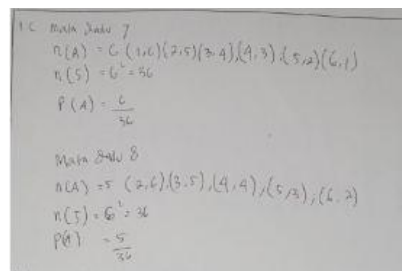 1.C Mata dadu 7
n(A) = 6 (1,6)(2,5)(3,4),(4,3),(5,2)(6,1)
n(S) = 6² = 36
P(A) = 6/36
Mata dadu 8
n(A) = 5 (2,6),(3,5),(4,4),(5,3),(6,2)
n(S) = 6² = 36
P(A) = 5/36